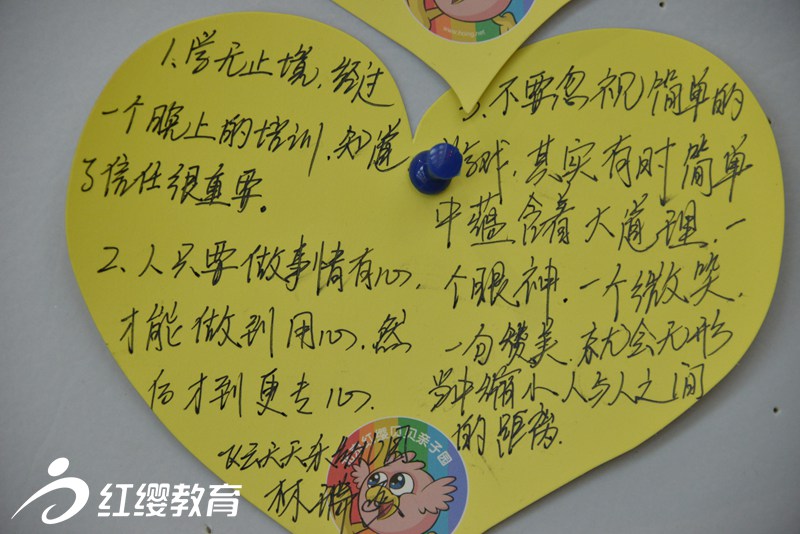 1.学无止境,经过
一个晚上的培训,知道
了信任很重要。
2、人只要做事情有心,
才能做到用心,然
后才到更专心.
3、不要忽视简单的
游戏,其实有时简单
中蕴含着大道理.一
个眼神.一个微笑.
一句赞美.就会无形
当中缩小人与人之间
的距离.
天天乐幼儿园
林
红缨贝贝亲子园
红缨教育